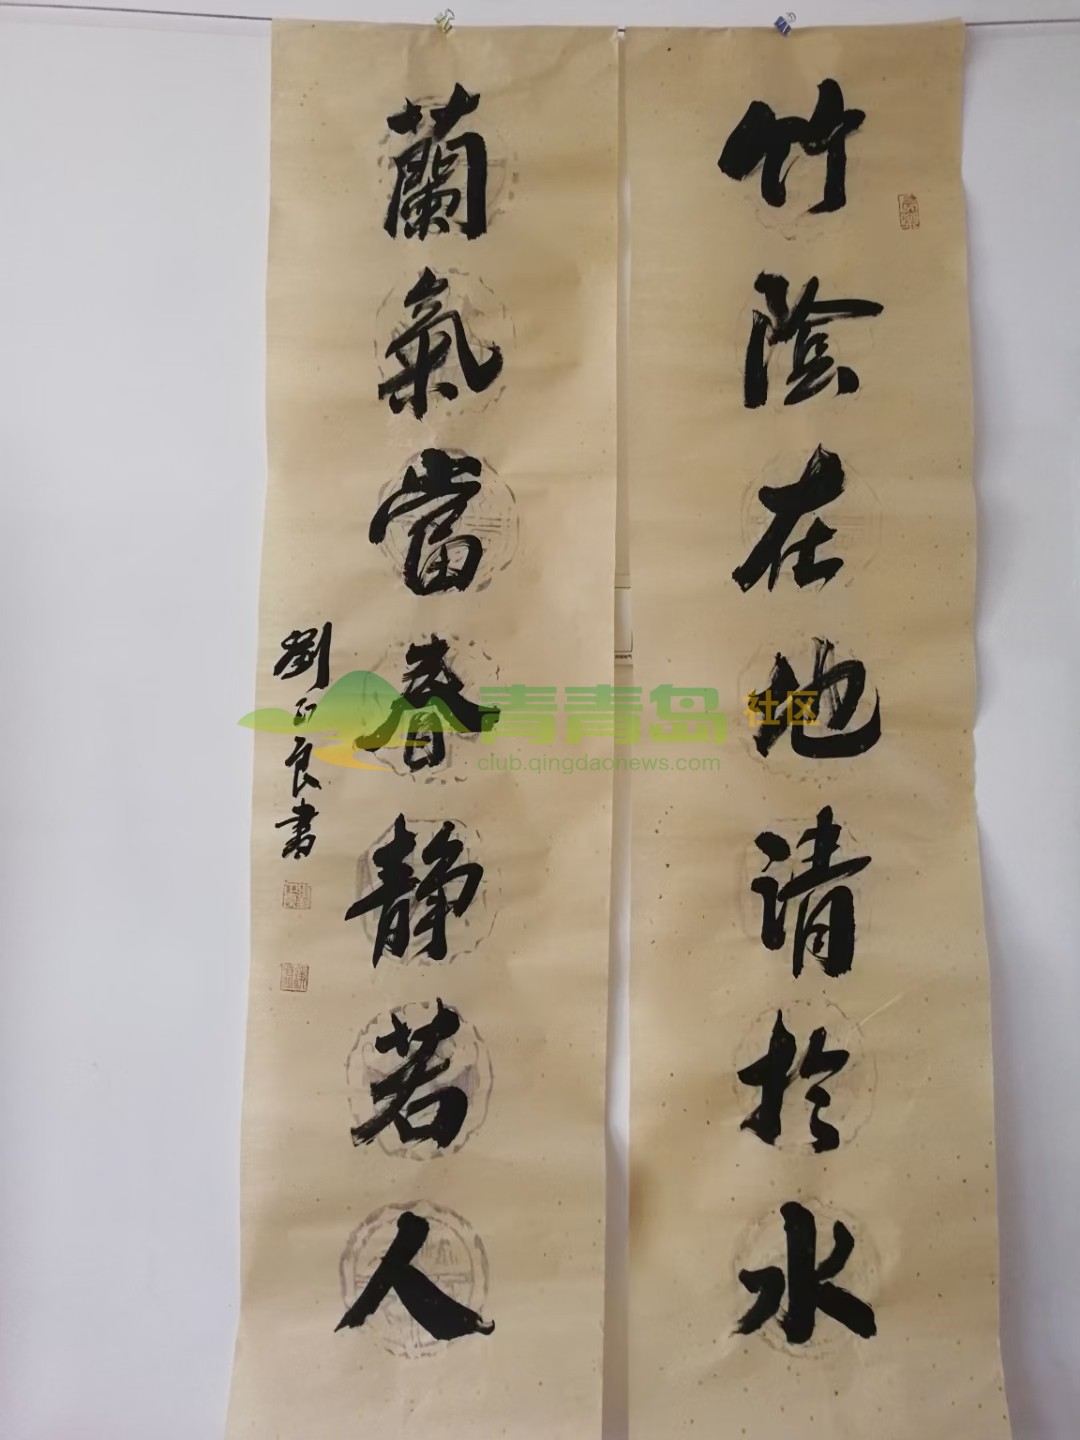 竹陰在地清於水
蘭氣當春静若人
劉良書
青青岛社区
club.qingdaonews.com